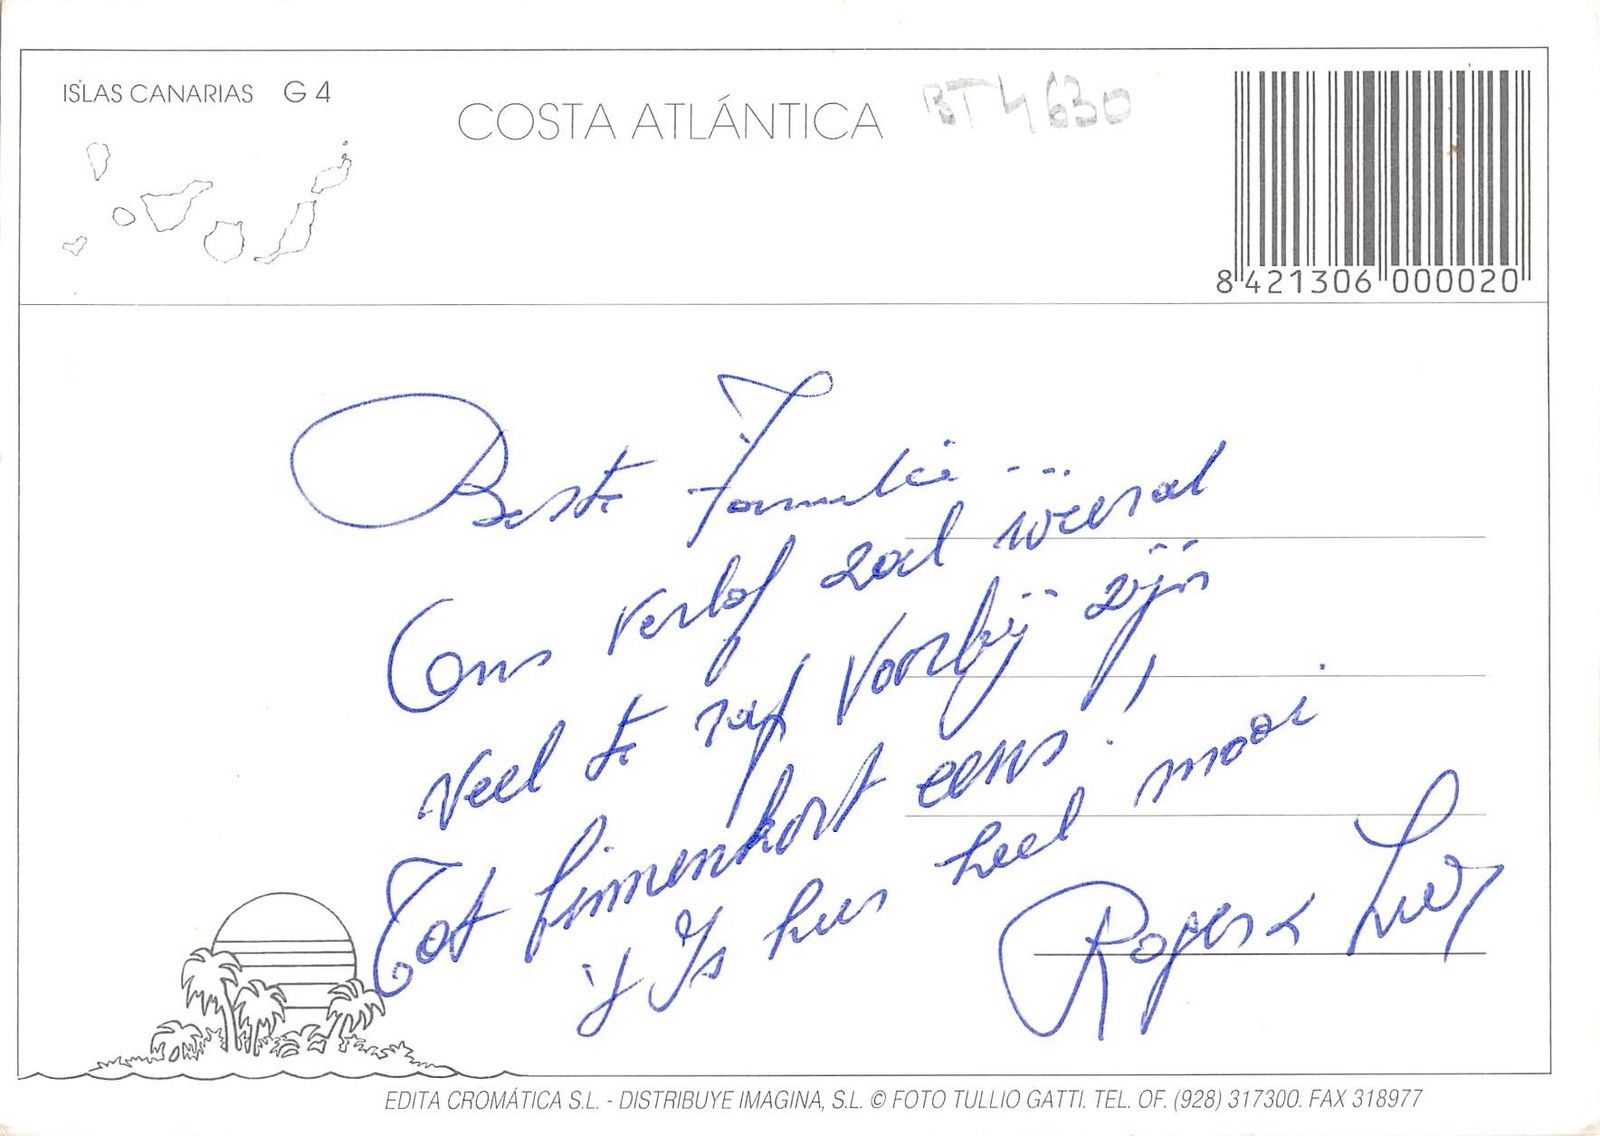 ISLAS CANARIAS G 4
COSTA ATLÁNTICA
BT4630
8 421306 000020
Beste Familie
Ons verlof zal weeral
veel te rap voorbij zijn,
Tot binnenkort eens.
't Is hier heel mooi
Roger &
EDITA CROMÁTICA S.L. - DISTRIBUYE IMAGINA, S.L. © FOTO TULLIO GATTI. TEL. OF. (928) 317300. FAX 318977